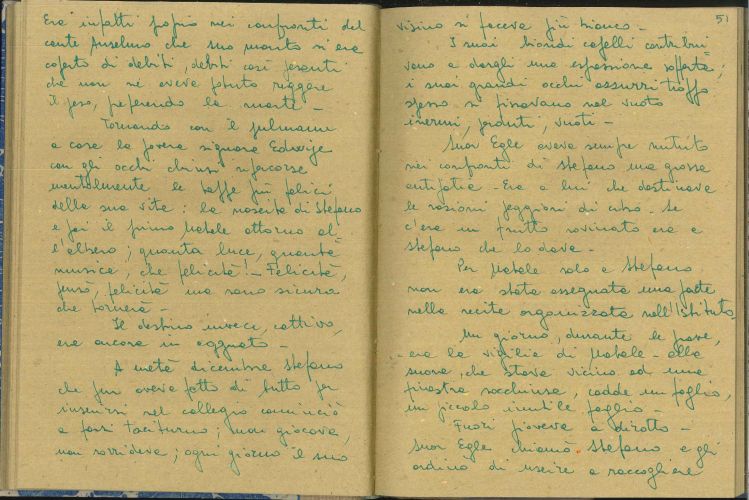 Era infatti proprio nei confronti del
conte Anselmo che suo marito si era
coperto di debiti, debiti così pesanti
che non ne aveva potuto reggere
il peso, preferendo la morte -
Tornando con il pulmann
a casa la povera signora Edwige
con gli occhi chiusi ripercorse
mentalmente le tappe più felici
della sua vita: la nascita di Stefano
e poi il primo Natale attorno al-
l'albero; quanta luce, quanta
musica, che felicità! - Felicità,
pensò, felicità ma sono sicura
che tornerà -
Il destino invece, cattivo,
era ancora in agguato -
A metà dicembre Stefano
che pur aveva fatto di tutto per
inserirsi nel collegio cominciò
a farsi taciturno; non giocava,
non sorrideva; ogni giorno il suo
51
visino si faceva più bianco -
I suoi biondi capelli contribui-
vano a dargli una espressione sofferta;
i suoi grandi occhi azzurri troppo
spesso si fissavano nel vuoto
inermi, perduti, vuoti -
Suor Egle aveva sempre nutrito
nei confronti di Stefano una grossa
antipatia - Era a lui che destinava
le razioni peggiori di cibo. Se
c'era un frutto rovinato era a
Stefano che lo dava -
Per Natale solo a Stefano
non era stata assegnata una parte
nella recita organizzata nell'Istituto.
Un giorno, durante le prove,
- era la vigilia di Natale - alla
suora, che stava vicino ad una
finestra socchiusa, cadde un foglio,
un piccolo inutile foglio -
Fuori pioveva a dirotto -
Suor Egle chiamò Stefano e gli
ordinò di uscire a raccogliere